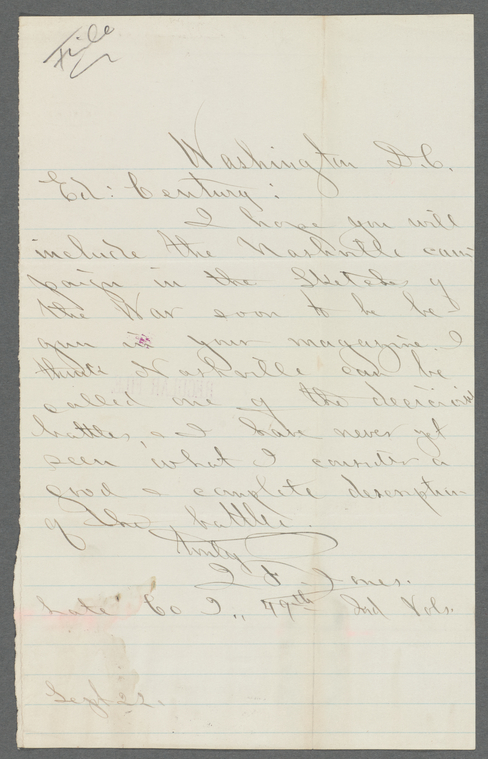 File
Washington D.C.
Ed: Century:
I hope you will
include the Nashville cam-
paign in the Sketches of
the War soon to be be-
gun in your magazine. I
think Nashville can be
called one of the decisive
battles, & I have never yet
seen what I consider a
good & complete description
of the battle.
Truly
Jones.
Late Co I., 79th Ind Vols.
Sept 22.